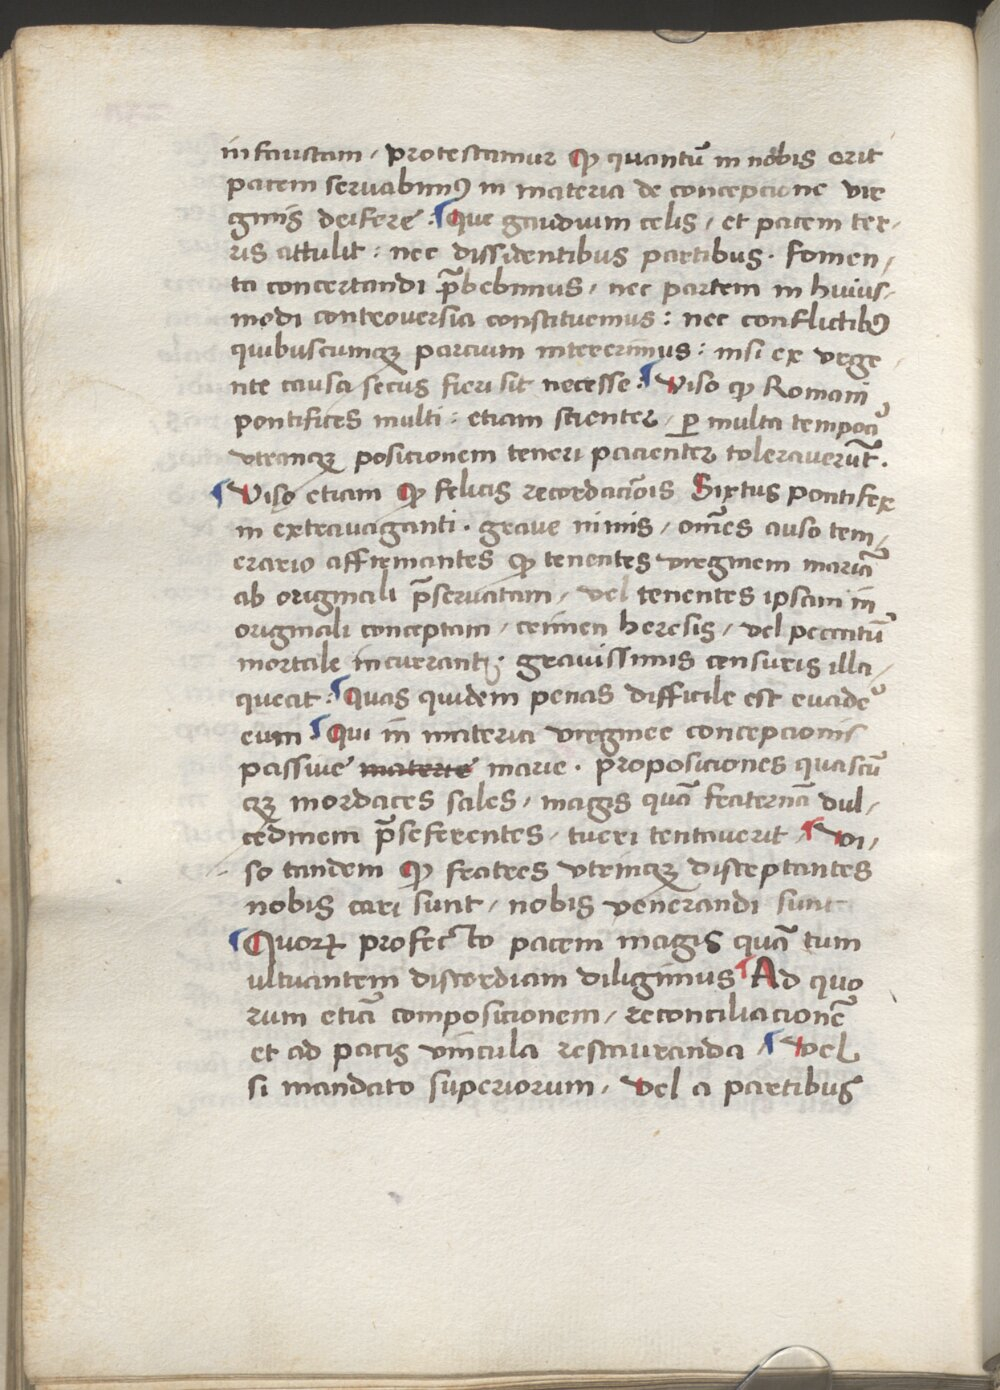 infaustam / protestamur ꝙ quantū in nobis erit
pacem seruabimꝰ in materia de concepcione vir
ginis deifere : Que gaudium celis / et pacem ter-
ris attulit : nec dissidentibus partibus · fomen /
ta concertandi p̄bebimus / nec partem in huius-
modi controuersia constituemus : nec conflictibꝰ
quibuscumqꝫ parcium intererimus : nisi ex vrge
nte causa secus fieri sit necesse : Viso ꝙ Romani
pontifices multi : etiam scienter / ꝑ multa tempora
vtramqꝫ posicionem teneri pacienter tolerauerūt .
Viso etiam ꝙ felicis recordaciōis Sixtus pontifex
in extrauaganti · graue nimis / om̄es auso tem /
erario affirmantes ꝙ tenentes virginem mariā
ab originali p̄seruatam / vel tenentes ipsam in
originali conceptam / crimen heresis / vel peccatū
mortale incurrant · grauissimis censuris illa /
queat : Quas quidem penas difficile est euade
eum : Qui in materia virginee concepcionis
passiue materie marie · proposiciones quascū
qꝫ mordaces sales / magis quā fraternā dul /
cedinem p̄seferentes / tueri tentauerit / Vi /
so tandem ꝙ fratres vtrinqꝫ disceptantes
nobis cari sunt / nobis venerandi sunt
Quoꝝ profecto pacem magis quā tum
ultuantem discordiam diligimus Ad quo
rum etiā composicionem / reconciliacionē
et ad pacis vincula restauranda / Vel
si mandato superiorum / Vel a partibus